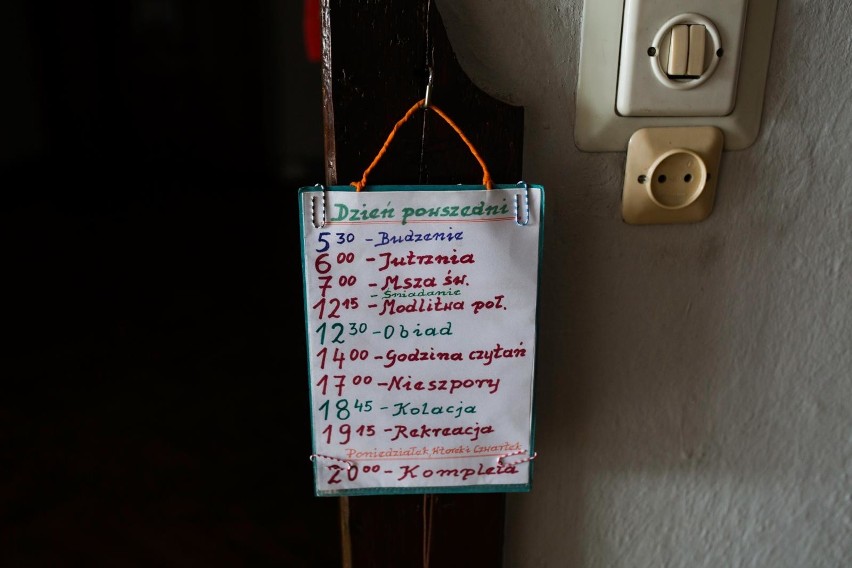 Dzień powszedni
5 30 - Budzenie
6 00 - Jutrznia
7 00 - Msza św.
- Śniadanie
12 15 - Modlitwa poł.
12 30 - Obiad
14 00 - Godzina czytań
17 00 - Nieszpory
18 45 - Kolacja
19 15 - Rekreacja
Poniedziałek, Wtorek i Czwartek
20 00 - Kompleta